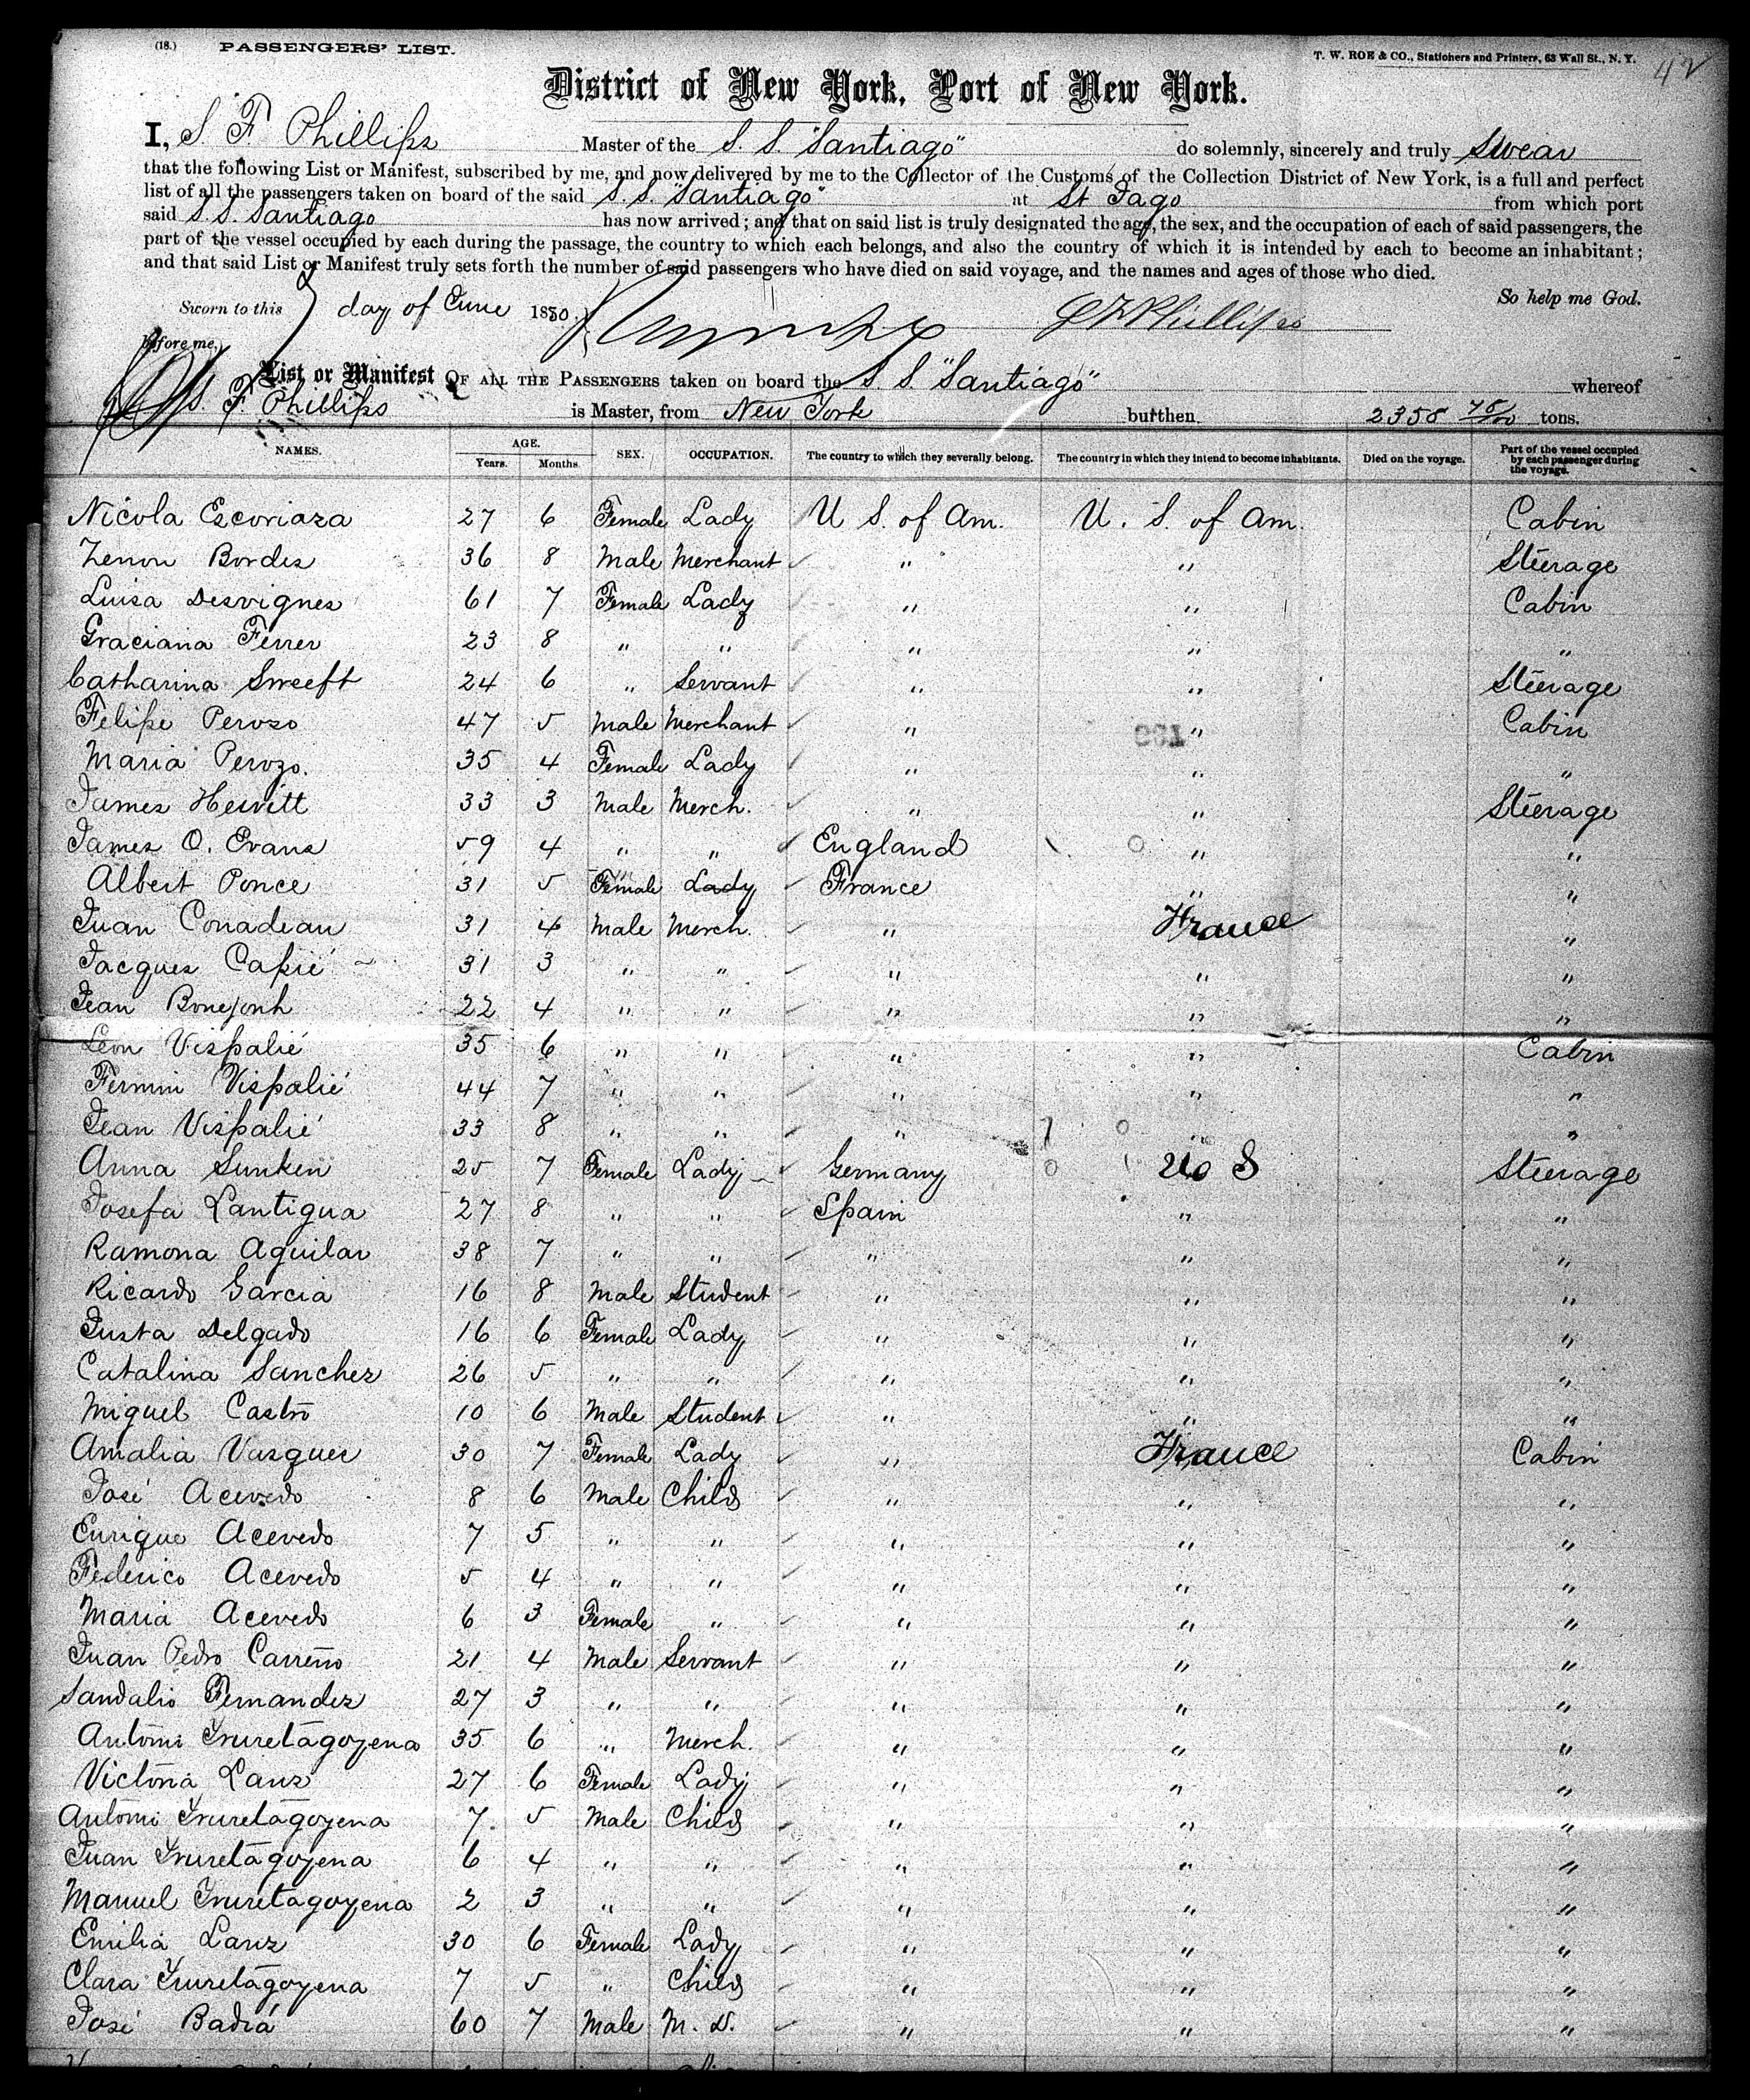 (18.) PASSENGERS' LIST. T. W. ROE & CO., Stationers and Printers, 63 Wall St., N. Y. 42
District of New York, Port of New York.
I, S. F. Phillips Master of the S. S. "Santiago" do solemnly, sincerely and truly Swear
that the following List or Manifest, subscribed by me, and now delivered by me to the Collector of the Customs of the Collection District of New York, is a full and perfect
list of all the passengers taken on board of the said S. S. "Santiago" at St Jago from which port
said S. S. Santiago has now arrived; and that on said list is truly designated the age, the sex, and the occupation of each of said passengers, the
part of the vessel occupied by each during the passage, the country to which each belongs, and also the country of which it is intended by each to become an inhabitant;
and that said List or Manifest truly sets forth the number of said passengers who have died on said voyage, and the names and ages of those who died.
So help me God.
Sworn to this 7 day of June 1880. S F Phillips
before me,
List or Manifest OF ALL THE PASSENGERS taken on board the S. S. "Santiago" whereof
S. F. Phillips is Master, from New York burthen 2358 78/100 tons.
NAMES. AGE. Years. Months. SEX. OCCUPATION. The country to which they severally belong. The country in which they intend to become inhabitants. Died on the voyage. Part of the vessel occupied by each passenger during the voyage.
Nicola Escoriaza 27 6 Female Lady U S. of Am. U. S. of Am. Cabin
Zenon Bordes 36 8 Male Merchant " " Steerage
Luisa Desvignes 61 7 Female Lady " " Cabin
Graciana Ferrer 23 8 " " " " "
Catharina Sweeft 24 6 " Servant " " Steerage
Felipe Perozo 47 5 Male Merchant " " Cabin
Maria Perozo. 35 4 Female Lady " " "
James Hewitt 33 3 Male Merch. " " Steerage
James O. Evans 59 4 " " England " "
Albert Ponce 31 5 Female Lady France " "
Juan Conadeau 31 4 Male Merch. " France "
Jacques Capié 31 3 " " " " "
Jean Bonejonh 22 4 " " " " "
Leon Vispalié 35 6 " " " " Cabin
Fermin Vispalié 44 7 " " " " "
Jean Vispalié 33 8 " " " " "
Anna Sunken 25 7 Female Lady Germany U S Steerage
Josefa Lantigua 27 8 " " Spain " "
Ramona Aguilar 38 7 " " " " "
Ricardo Garcia 16 8 Male Student " " "
Justa Delgado 16 6 Female Lady " " "
Catalina Sanchez 26 5 " " " " "
Miguel Castro 10 6 Male Student " " "
Amalia Vasquez 30 7 Female Lady " France Cabin
José Acevedo 8 6 Male Child " " "
Enrique Acevedo 7 5 " " " " "
Federico Acevedo 5 4 " " " " "
Maria Acevedo 6 3 Female " " " "
Juan Pedro Carreño 21 4 Male Servant " " "
Sandalio Fernandez 27 3 " " " " "
Antonio Iruretagoyena 35 6 " Merch. " " "
Victoria Lanz 27 6 Female Lady " " "
Antonio Iruretagoyena 7 5 Male Child " " "
Juan Iruretagoyena 6 4 " " " " "
Manuel Iruretagoyena 2 3 " " " " "
Emilia Lanz 30 6 Female Lady " " "
Clara Iruretagoyena 7 5 " Child " " "
José Badiá 60 7 Male M. D. " " "